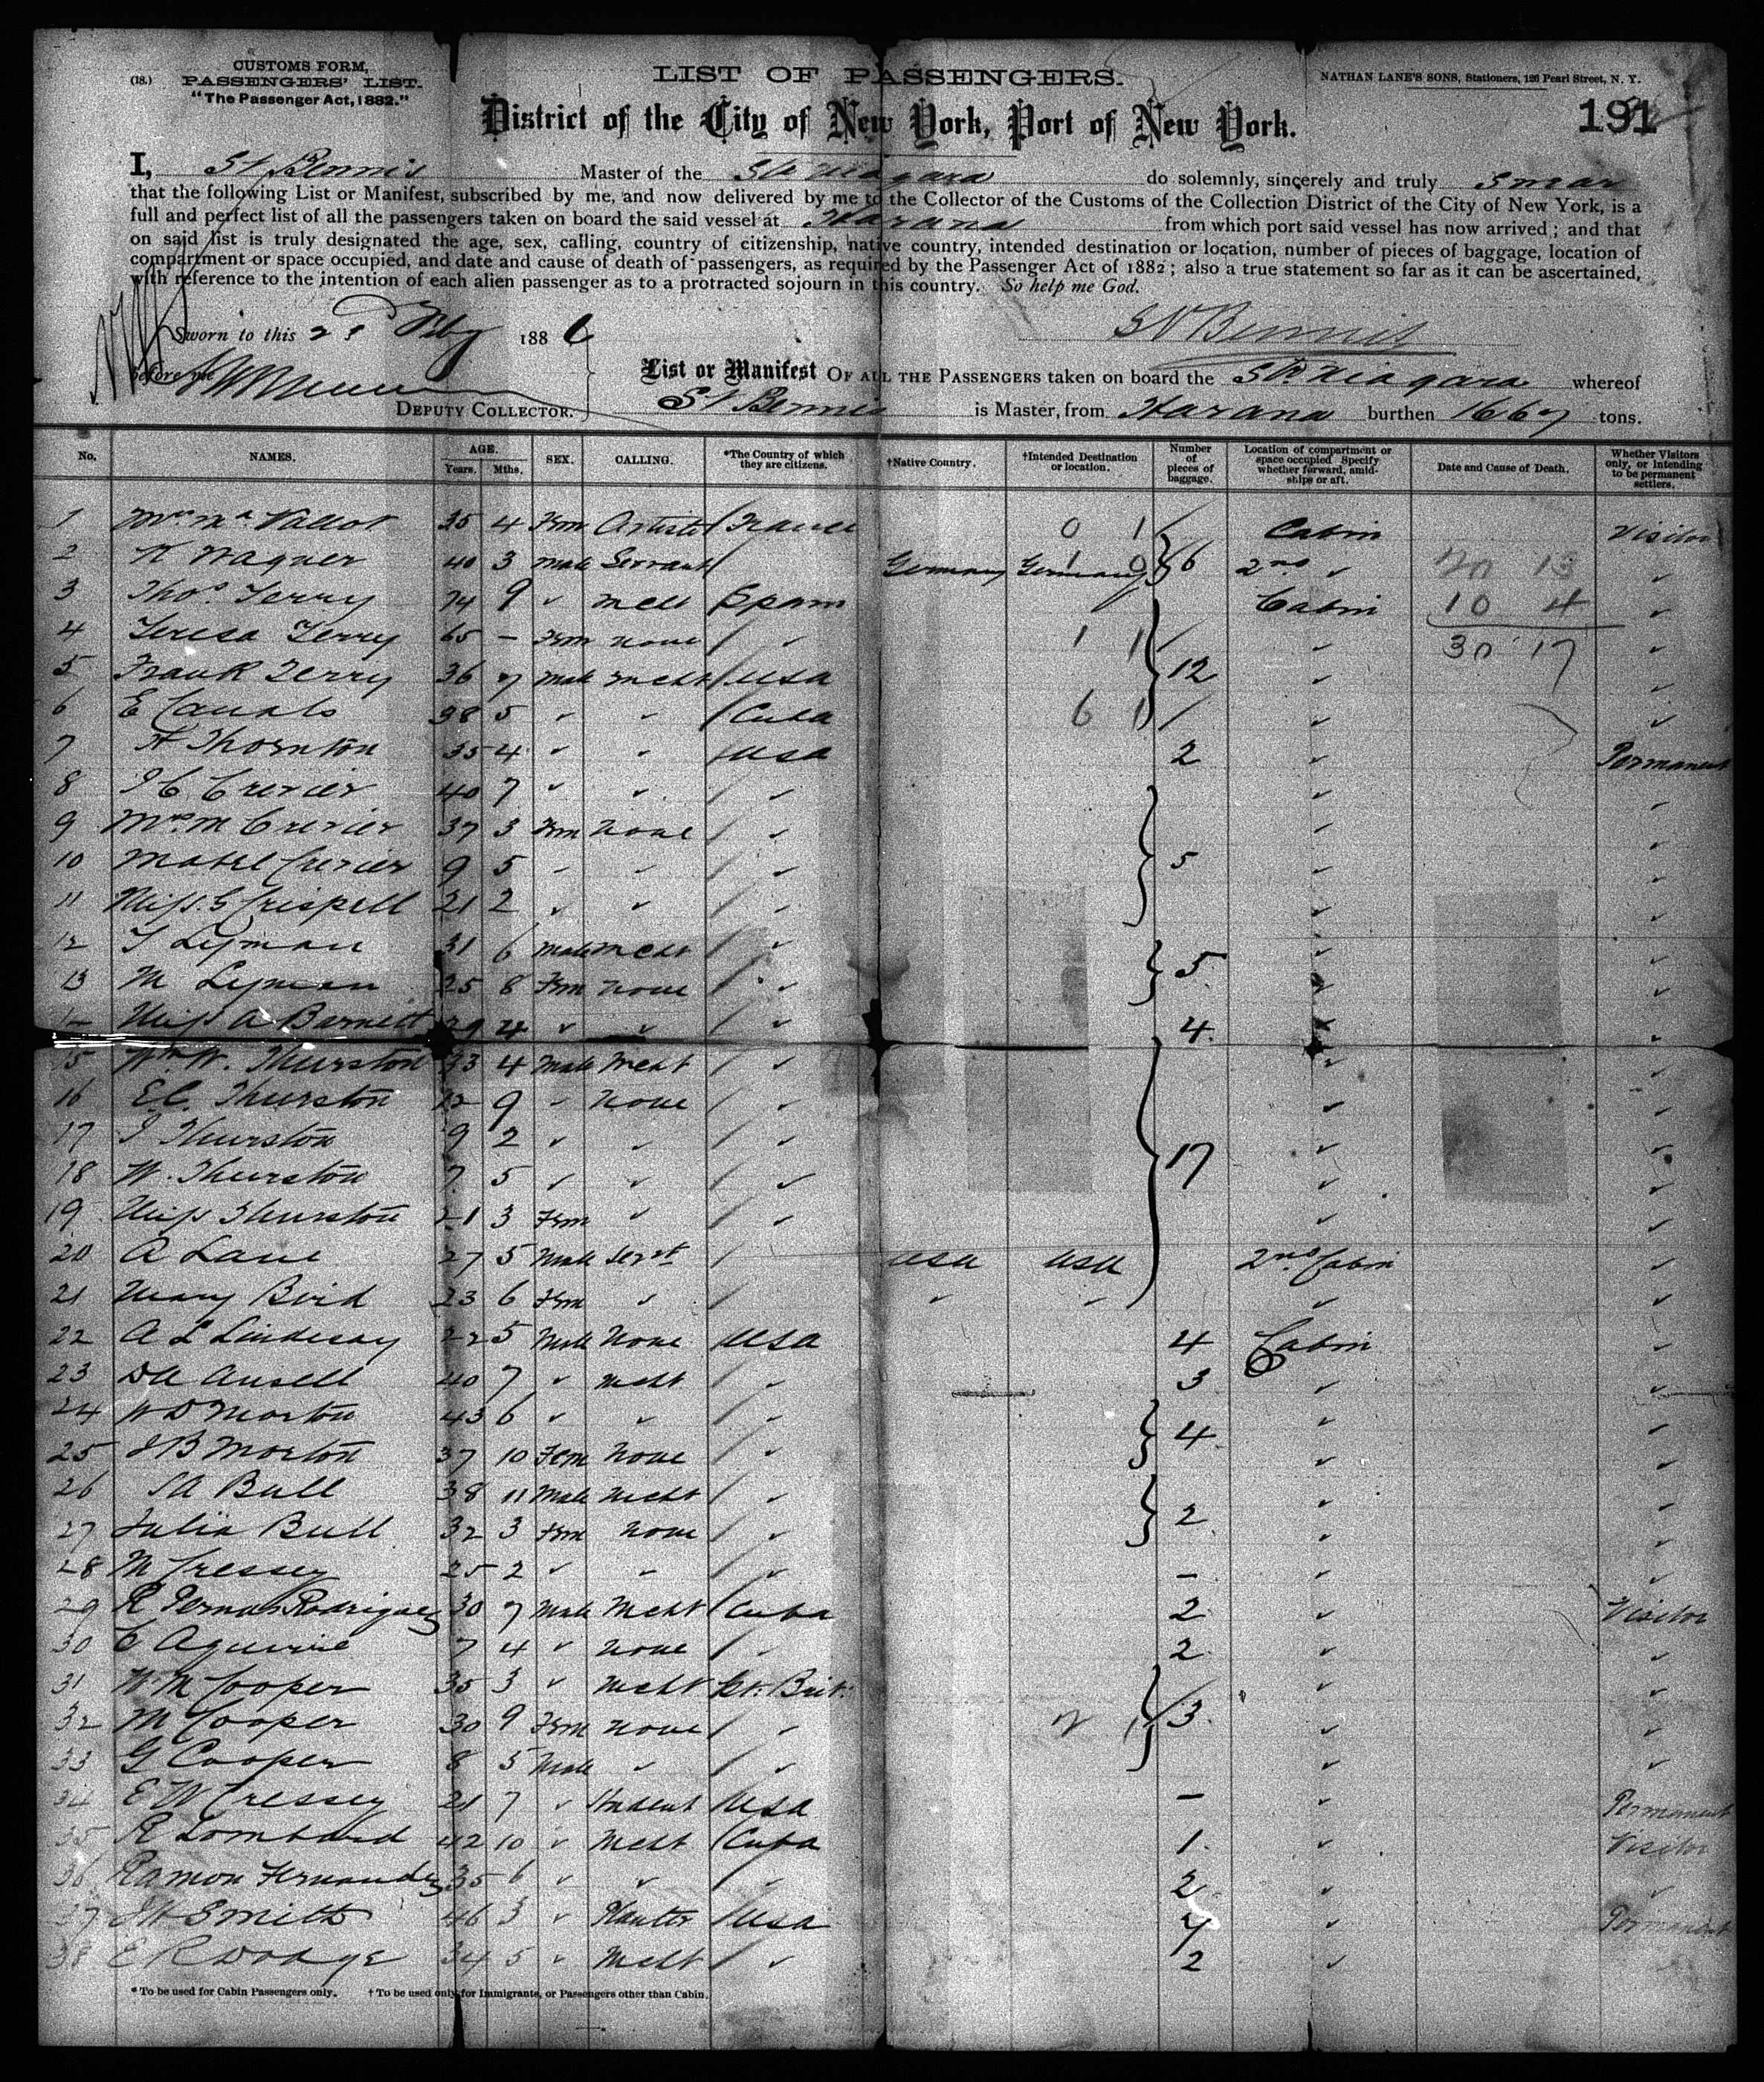 (18.)
CUSTOMS FORM,
PASSENGERS' LIST.
"The Passenger Act, 1882."
LIST OF PASSENGERS.
NATHAN LANE'S SONS, Stationers, 126 Pearl Street, N. Y.
District of the City of New York, Port of New York.
191
I, Bennis Master of the Str Niagara do solemnly, sincerely and truly swear
that the following List or Manifest, subscribed by me, and now delivered by me to the Collector of the Customs of the Collection District of the City of New York, is a
full and perfect list of all the passengers taken on board the said vessel at Havana from which port said vessel has now arrived; and that
on said list is truly designated the age, sex, calling, country of citizenship, native country, intended destination or location, number of pieces of baggage, location of
compartment or space occupied, and date and cause of death of passengers, as required by the Passenger Act of 1882; also a true statement so far as it can be ascertained,
with reference to the intention of each alien passenger as to a protracted sojourn in this country. So help me God.
Sworn to this Feby 1886 Bennis
before me
DEPUTY COLLECTOR.
List or Manifest OF ALL THE PASSENGERS taken on board the Str. Niagara whereof
Bennis is Master, from Havana burthen 1667 tons.
No. NAMES. AGE. Years. Mths. SEX. CALLING. *The Country of which they are citizens. †Native Country. †Intended Destination or location. Number of pieces of baggage. Location of compartment or space occupied Specify whether forward, amidships or aft. Date and Cause of Death. Whether Visitors only, or intending to be permanent settlers.
1 35 4 Fem Artiste France 0 1 Cabin Visitor
2 Wagner 40 3 Male Servant Germany Germany 1 0 6 2nd ✓ 20 13 ✓
3 Thos. Terry 74 9 ✓ Spain Cabin 10 4 ✓
4 Teresa Terry 65 - Fem none ✓ 1 1 ✓ 30 17 ✓
5 Frank Terry 36 7 Male Mcht USA 12 ✓ ✓
6 E 38 5 ✓ ✓ Cuba 6 1 ✓ ✓
7 H Thornton 35 4 ✓ ✓ USA 2 ✓ Permanent
8 40 7 ✓ ✓ ✓ ✓ ✓
9 Mrs M 37 3 Fem none ✓ ✓ ✓
10 Mabel 9 5 ✓ ✓ ✓ 5 ✓ ✓
11 Miss G Crispell 21 2 ✓ ✓ ✓ ✓ ✓
12 Lyman 31 6 Male Mcht ✓ ✓ ✓
13 M Lyman 25 8 Fem none ✓ 5 ✓ ✓
Miss A Barnett 29 4 ✓ ✓ ✓ 4 ✓ ✓
15 Wm W. Thurston 33 4 Male Mcht ✓ ✓ ✓
16 E.C. Thurston 12 9 ✓ none ✓ ✓ ✓
17 Thurston 9 2 ✓ ✓ ✓ ✓ ✓
18 W. Thurston 7 5 ✓ ✓ ✓ 17 ✓ ✓
19 Miss Thurston 21 3 Fem ✓ ✓ ✓ ✓
20 A Lane 27 5 Male Servt USA USA 2nd Cabin ✓
21 Mary Bird 23 6 Fem ✓ ✓ ✓ ✓ ✓
22 A L Lindesay 22 5 Male none USA 4 Cabin ✓
23 Ansell 40 7 ✓ Mcht ✓ 3 ✓ ✓
24 W D Morton 43 6 ✓ ✓ ✓ ✓ ✓
25 J B Morton 37 10 Fem none ✓ 4 ✓ ✓
26 Bull 38 11 Male Mcht ✓ ✓ ✓
27 Julia Bull 32 3 Fem none ✓ 2 ✓ ✓
28 M Cressey 25 2 ✓ ✓ ✓ - ✓ ✓
29 R Rodriguez 30 7 Male Mcht Cuba 2 ✓ Visitor
30 Aguirre 7 4 ✓ none ✓ 2 ✓ ✓
31 W M Cooper 35 3 ✓ Mcht Gt. Brit. ✓ ✓
32 M Cooper 30 9 Fem none ✓ 2 1 3 ✓ ✓
33 G Cooper 8 5 Male ✓ ✓ ✓ ✓
34 E W Cressey 21 7 ✓ Student USA - ✓ Permanent
35 R Lombard 42 10 ✓ Mcht Cuba 1 ✓ Visitor
36 Ramon Fernandez 35 6 ✓ ✓ ✓ 2 ✓ ✓
37 Smith 46 3 ✓ Planter USA 4 ✓ Permanent
38 E R Dodge 34 5 ✓ Mcht ✓ 2 ✓
* To be used for Cabin Passengers only. † To be used only for Immigrants, or Passengers other than Cabin.